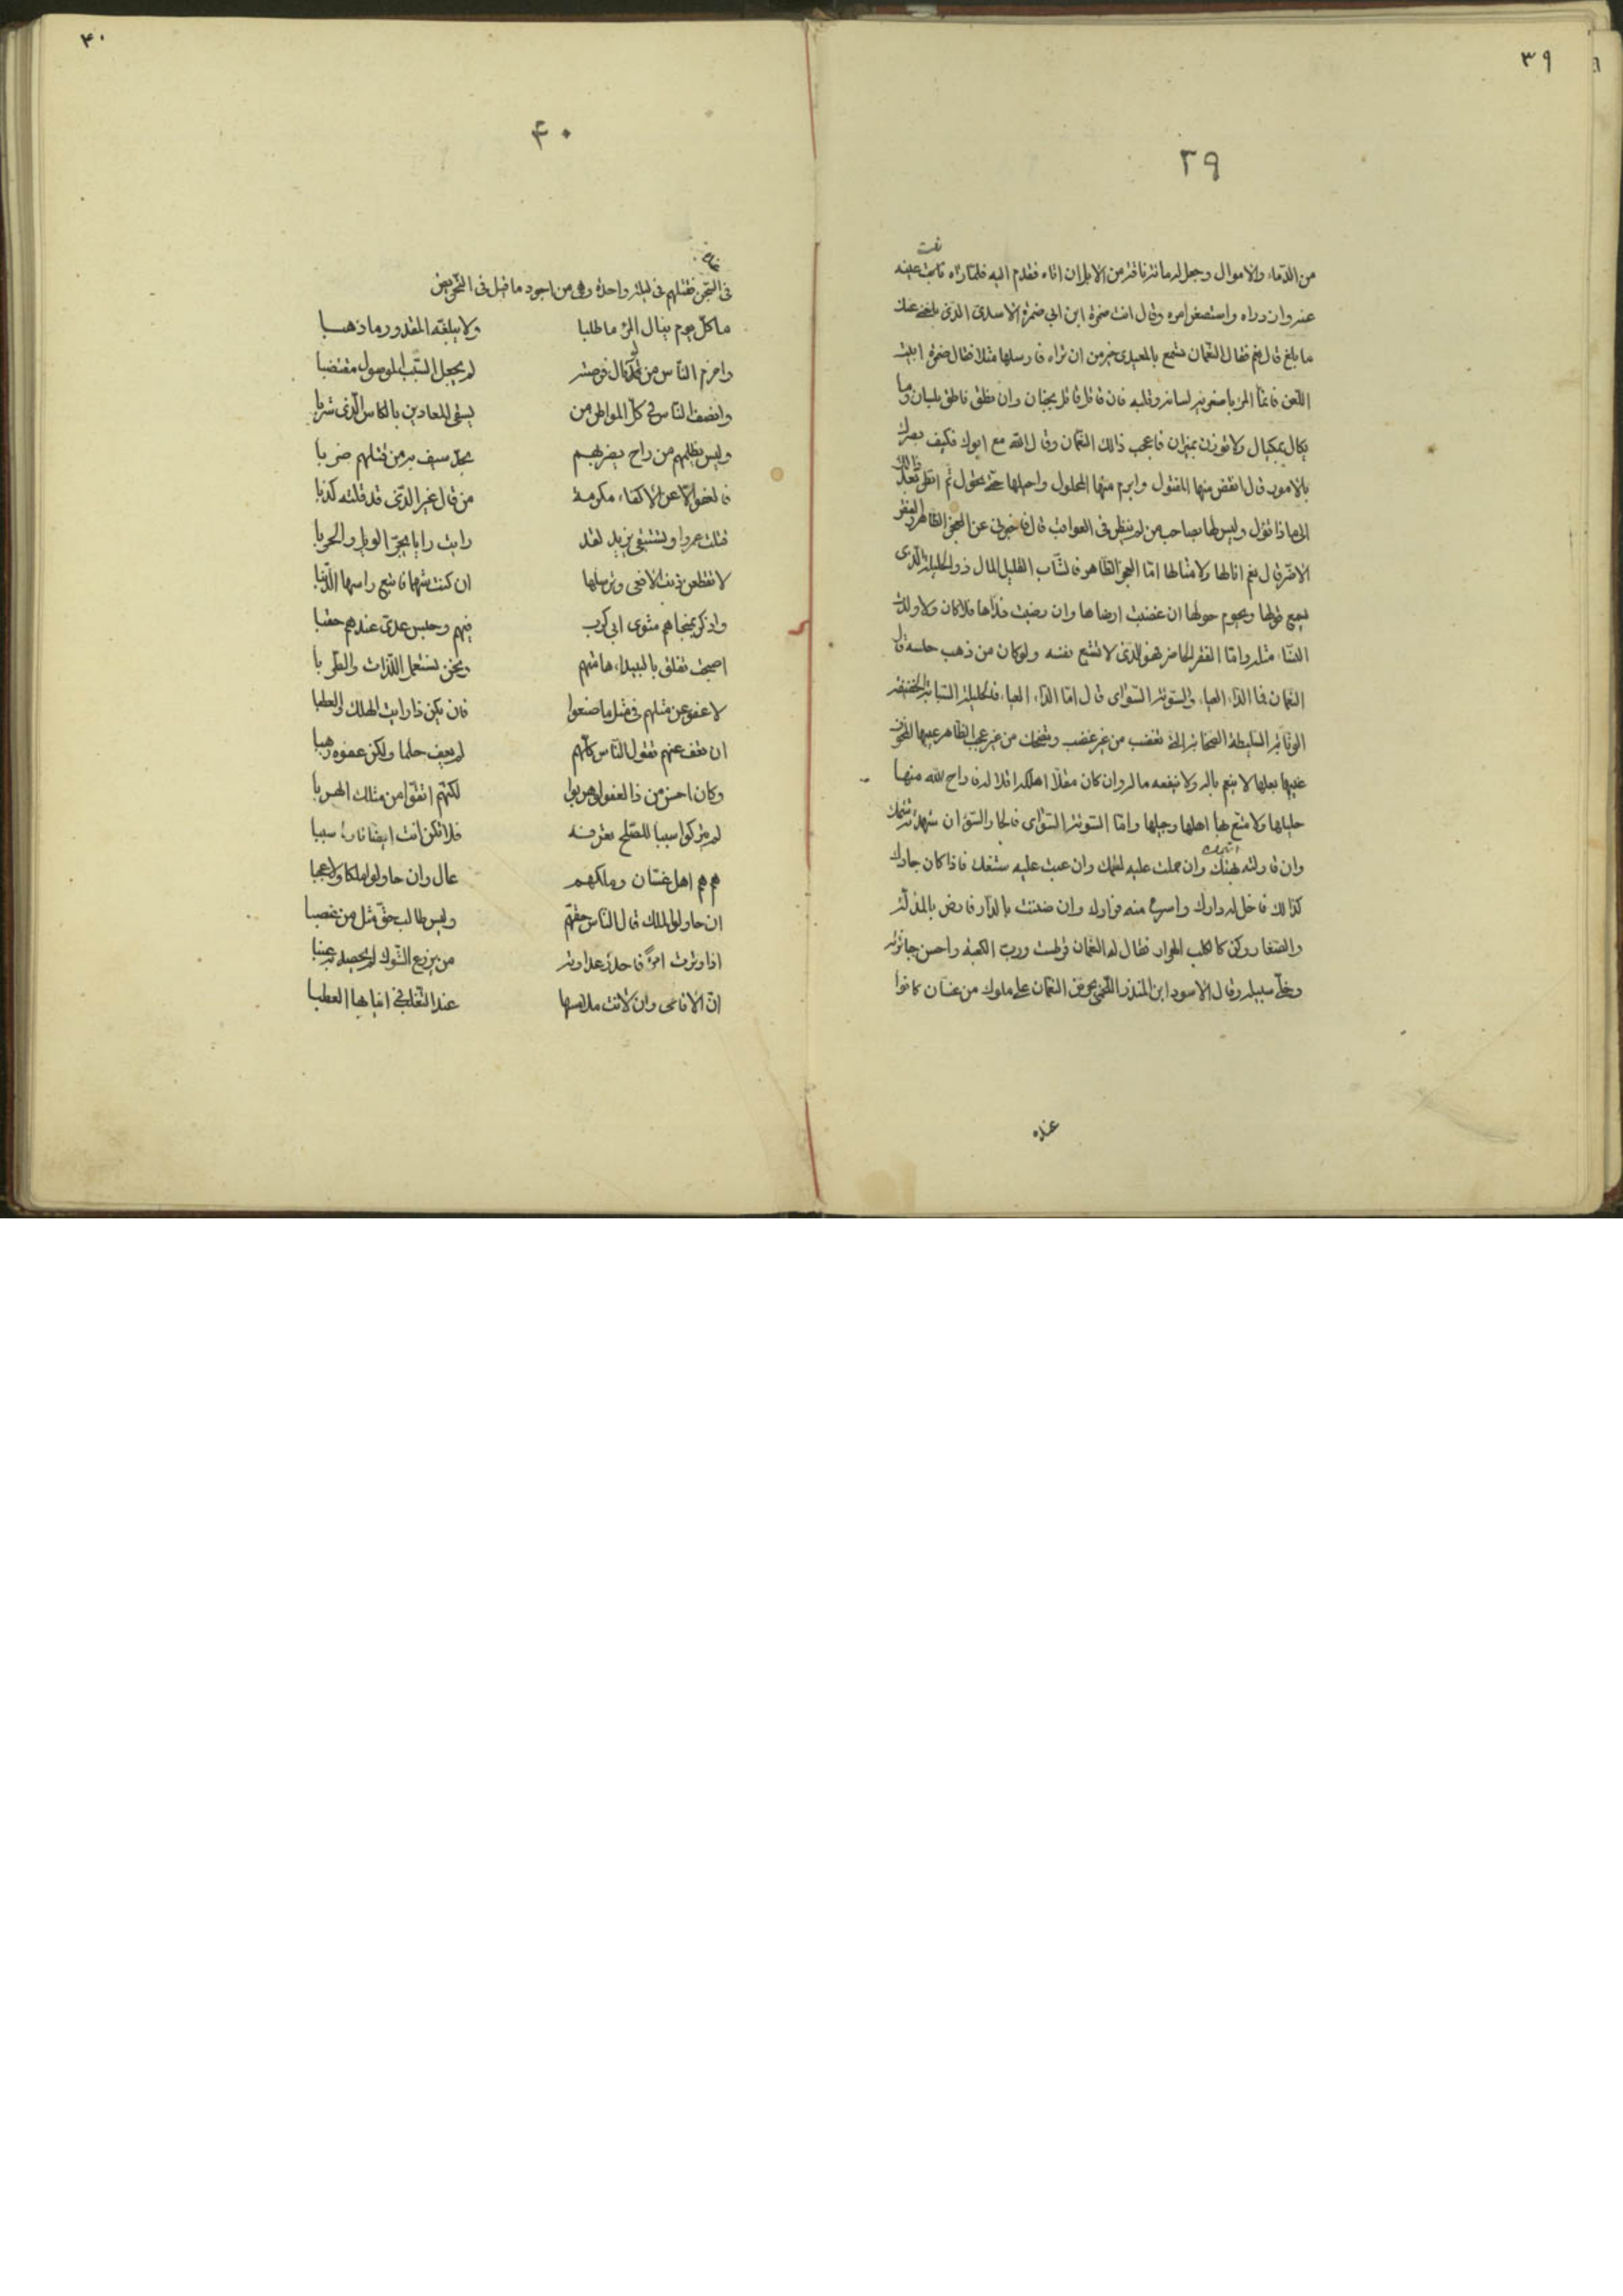 ٣٩
٣٩
من الدماء والاموال وجعل له مائة ناقة من الابل ان اتاه فقدم اليه فلما راه نبت عينه
عنه وازدراه واستصغر امره وقال انت ضمرة ابن ابي ضمرة الاسدى الذى بلغنى عنك
ما بلغ قال نعم فقال النعمان تسمع بالمعيدى خير من ان تراه فارسلها مثلا فقال ضمرة ابيت
اللعن فانما المرء باصغريه لسانه وقلبه فان قاتل قاتل بجنان وان نطق نطق بلسان وما
يكال بمكيال ولا توزن بميزان فاعجب ذالك النعمان وقال لله مع ابوك فكيف بصرك
بالامور قال انقض منها المفتول وابرم منها المحلول واحيلها حتى تحول ثم انظر بعد ذالك
الى ماذا تؤل وليس لها بصاحب من لم ينظر فى العواقب قال فاخبرنى عن العجز الظاهر والفقر
الاضر قال نعم انا لها ولامثالها اما العجز الظاهر فالشاب القليل المال ذو الحليلة الذى
يسمع قولها ويحوم حولها ان غضبت ارضاها وان رضيت فداها فلا كان ولا ولدت
النساء مثله واما الفقر الحاضر فهو الذى لا تشبع نفسه ولو كان من ذهب حلسه قال
النعمان فما الداء العياء والسوئة السؤاى قال اما الداء العياء فالحليلة الشابة الخفيفة
الوثابة السليطة الصخابة التى تغضب من غير غضب وتضحك من غير عجب الظاهر عيبها المخوف
غيبها بعلها لا ينعم باله ولا ينفعه ماله وان كان مقلا اهلكه اقلاله فاراح الله منها
حليلها ولا متع بها اهلها وجيلها واما السوئة السؤاى فالجار السوء ان شهدته شتمك
وان قاولته بهتك وان حملت عليه لطمك وان غبت عليه سبعك فاذا كان جارك
كذالك فاخل له دارك واسرع منه فرارك وان ضننت بالدار فارض بالمذلة
والصغار وكن كالكلب الهرار فقال له النعمان قرطست ورب الكعبة واحسن جائزته
وخلى سبيله وقال الاسود ابن المنذر اللخمى يحرض النعمان على ملوك من غسان كانوا
عنده
٤٠
٤٠
فى السجن فقتلهم فى ليلة واحدة وهى من اجود ما قيل فى التحريض
ما كل يوم ينال المرء ما طلبا ولا يبلغه المقدور ما ذهبا
واحزم الناس من لو نال فرصته لم يجعل السبب الموصول مقتضبا
وانصف الناس فى كل المواطن من يسقى المعادين بالكاس الذى شربا
وليس يظلمهم من راح يضربهم بحد سيف به من قبلهم ضربا
فالعفو الا عن الاكفاء مكرمة من قال غير الذى قد قلته كذبا
قتلت عمروا وتستبقى يزيد لقد رايت رايا يجر الويل والحربا
لا تقطعن ذنب الافعى وترسلها ان كنت شهما فاتبع راسها الذنبا
واذكر بمنجاهم مثوى ابى كرب فيهم وحبس عدى عندهم حقبا
اصبحت تفلق بالبيداء هامتهم ونحن نستعمل اللذات والطربا
لا عفو عن مثلهم فى مثل ما صنعوا فان يكن ذا رايت الهلك والعطبا
ان تعف عنهم تقول الناس كلهم لم يعف حلما ولكن عفوه رهبا
وكان احسن من ذا العفو لو هربوا لكنهم انفوا من مثلك الهربا
لم يتركوا سببا للصلح تعرفه فلا تكن انت ايضا تاركا سببا
هم هم اهل غسان وملكهم عال وان حاولوا ملكا ولا عجبا
ان حاولوا الملك قال الناس حقهم وليس طالب حق مثل من غصبا
اذا وترت امرءا فاحذر عداوته من يزرع الشوك لم يحصد به عنبا
ان الافاعى وان لانت ملامسها عند التقلب فى انيابها العطبا